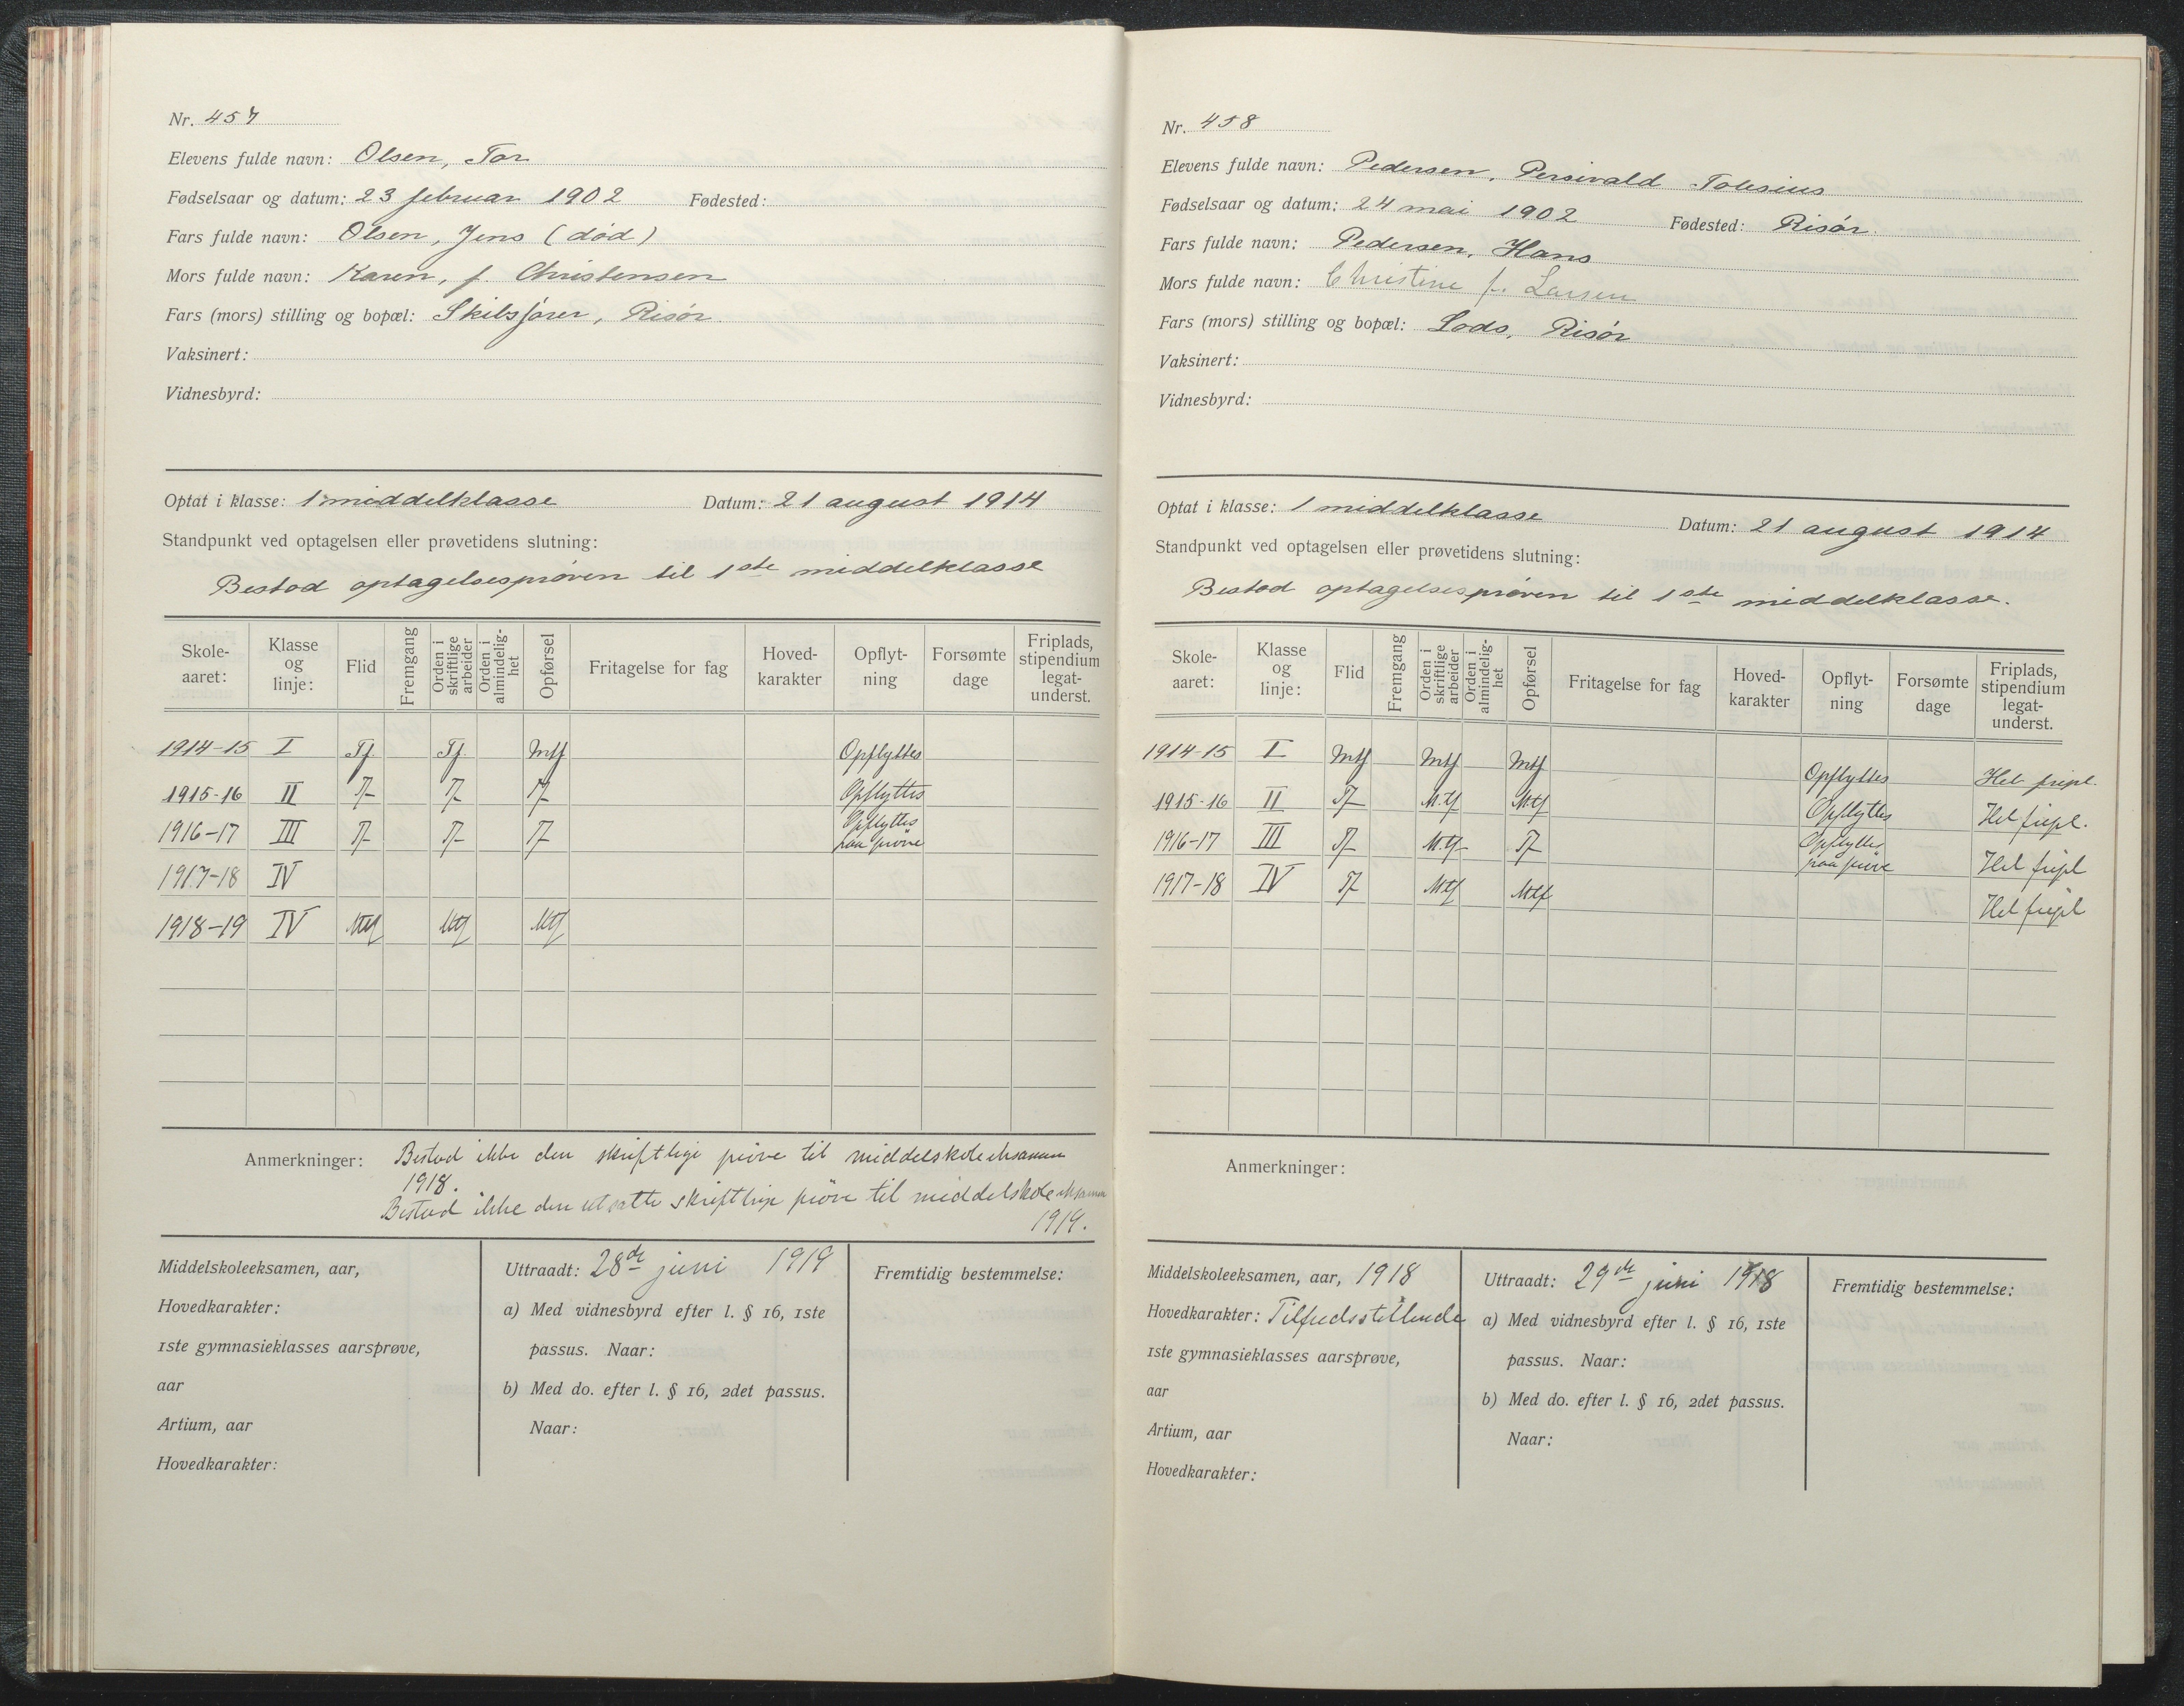 Nr. 457
Elevens fulde navn: Olsen, Tor
Fødselsaar og datum: 23 februar 1902 Fødested:
Fars fulde navn: Olsen, Jens (død)
Mors fulde navn: Karen, f. Christensen
Fars (mors) stilling og bopæl: Skibsfører, Risør.
Vaksinert:
Vidnesbyrd:
Optat i klasse: 1 middelklasse Datum: 21 august 1914
Standpunkt ved optagelsen eller prøvetidens slutning:
Bestod optagelsesprøven til 1ste middelklasse
Skole-aaret: Klasse og linje: Flid Fremgang Orden i skriftlige arbeider Orden i almindelig-het Opførsel Fritagelse for fag Hoved-karakter Opflyt-ning Forsømte dage Friplads, stipendium legat-underst.
1914-15 I Tf. Tf. Mtf Opflyttes
1915-16 II Tf Tf Tf Opflyttes
1916-17 III Tf Tf Tf Opflyttes paa prøve
1917-18 IV
1918-19 IV Mtf Mtf Mtf
Anmerkninger: Bestod ikke den skriftlige prøve til middelskoleeksamen
1918.
Bestod ikke den utsatte skriftlige prøve til middelskoleeksamen
1919.
Middelskoleeksamen, aar,
Hovedkarakter:
1ste gymnasieklasses aarsprøve,
aar
Artium, aar
Hovedkarakter:
Uttraadt: 28de juni 1919
a) Med vidnesbyrd efter l. § 16, 1ste
passus. Naar:
b) Med do. efter l. § 16, 2det passus.
Naar:
Fremtidig bestemmelse:
Nr. 458
Elevens fulde navn: Pedersen, Persivald Tolesius
Fødselsaar og datum: 24 mai 1902 Fødested: Risør.
Fars fulde navn: Pedersen, Hans
Mors fulde navn: Christine f. Larsen
Fars (mors) stilling og bopæl: Lods, Risør
Vaksinert:
Vidnesbyrd:
Optat i klasse: 1 middelklasse Datum: 21 august 1914
Standpunkt ved optagelsen eller prøvetidens slutning:
Bestod optagelsesprøven til 1ste middelklasse.
Skole-aaret: Klasse og linje: Flid Fremgang Orden i skriftlige arbeider Orden i almindelig-het Opførsel Fritagelse for fag Hoved-karakter Opflyt-ning Forsømte dage Friplads, stipendium legat-underst.
1914-15 I Mtf Mtf Mtf Opflyttes Hel fripl.
1915-16 II Tf M.tf M.tf Opflyttes Hel fripl.
1916-17 III Tf M.tf Tf Opflyttes paa prøve Hel fripl
1917-18 IV Tf Mtf Mtf Hel fripl
Anmerkninger:
Middelskoleeksamen, aar, 1918
Hovedkarakter: Tilfredsstillende
1ste gymnasieklasses aarsprøve,
aar
Artium, aar
Hovedkarakter:
Uttraadt: 29de juni 1918
a) Med vidnesbyrd efter l. § 16, 1ste
passus. Naar:
b) Med do. efter l. § 16, 2det passus.
Naar:
Fremtidig bestemmelse: